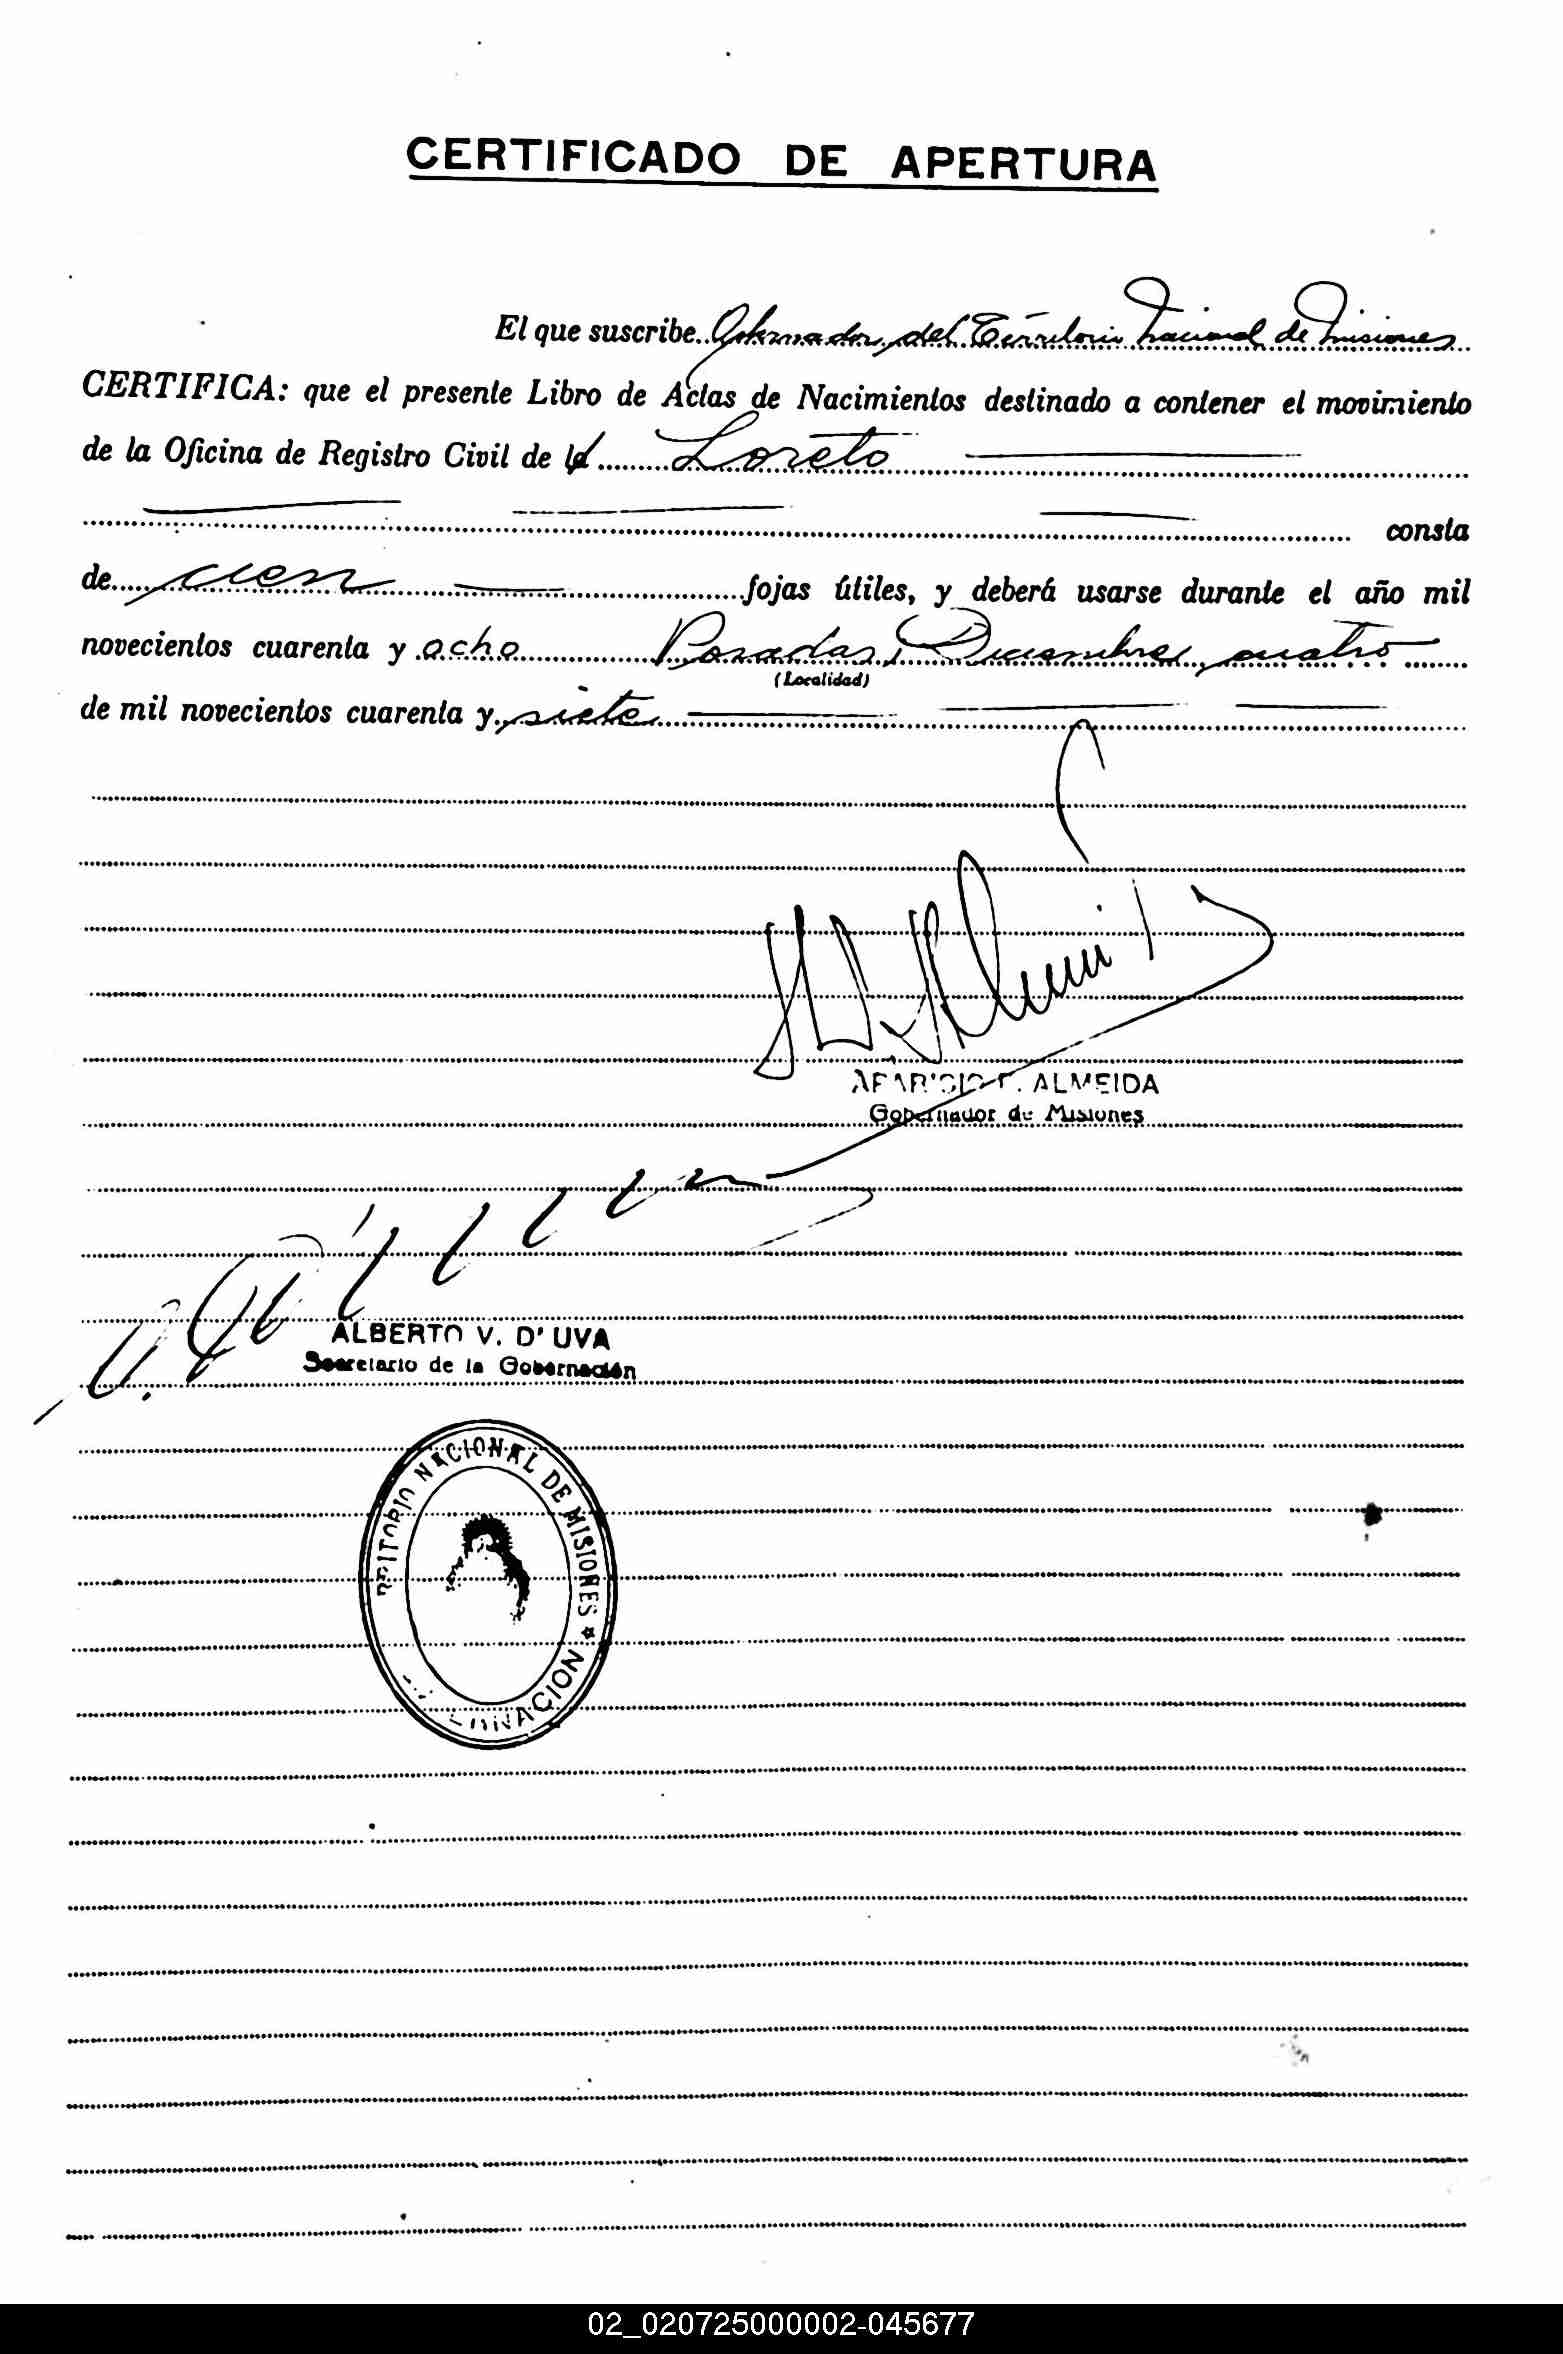 CERTIFICADO DE APERTURA
El que suscribe Gobernador del Territorio Nacional de Misiones
CERTIFICA: que el presente Libro de Actas de Nacimientos destinado a contener el movimiento
de la Oficina de Registro Civil de Loreto
consta
de cien fojas útiles, y deberá usarse durante el año mil
novecientos cuarenta y ocho Posadas, Diciembre cuatro
(Localidad)
de mil novecientos cuarenta y siete
APARICIO F. ALMEIDA
Gobernador de Misiones
ALBERTO V. D' UVA
Secretario de la Gobernación
NACIONAL DE MISIONES
02_020725000002-045677